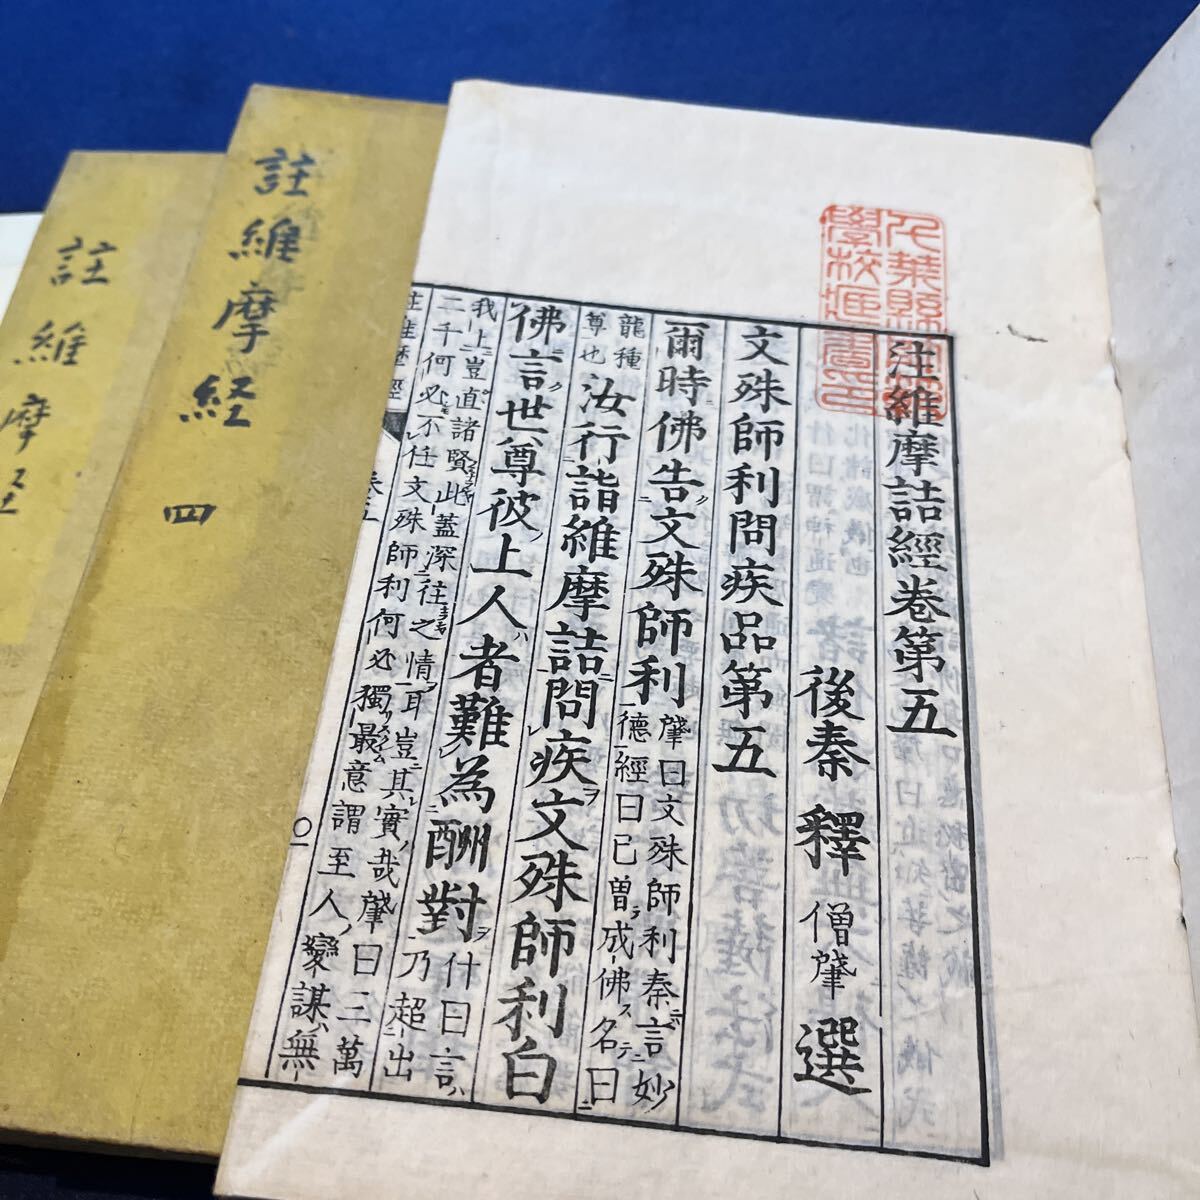 注維摩詰經卷第五
後秦釋僧肇選
文殊師利問疾品第五
爾時佛告文殊師利肇曰文殊師利秦言妙
德經曰已曾成佛名曰
龍種
尊也汝行詣維摩詰問疾文殊師利白
佛言世尊彼上人者難為酬對什曰言
乃超出
我上豈直諸賢此蓋深往之情耳豈其實哉肇曰三萬
二千何必不任文殊師利何必獨最意謂至人變謀無
註維摩経四
註維摩経